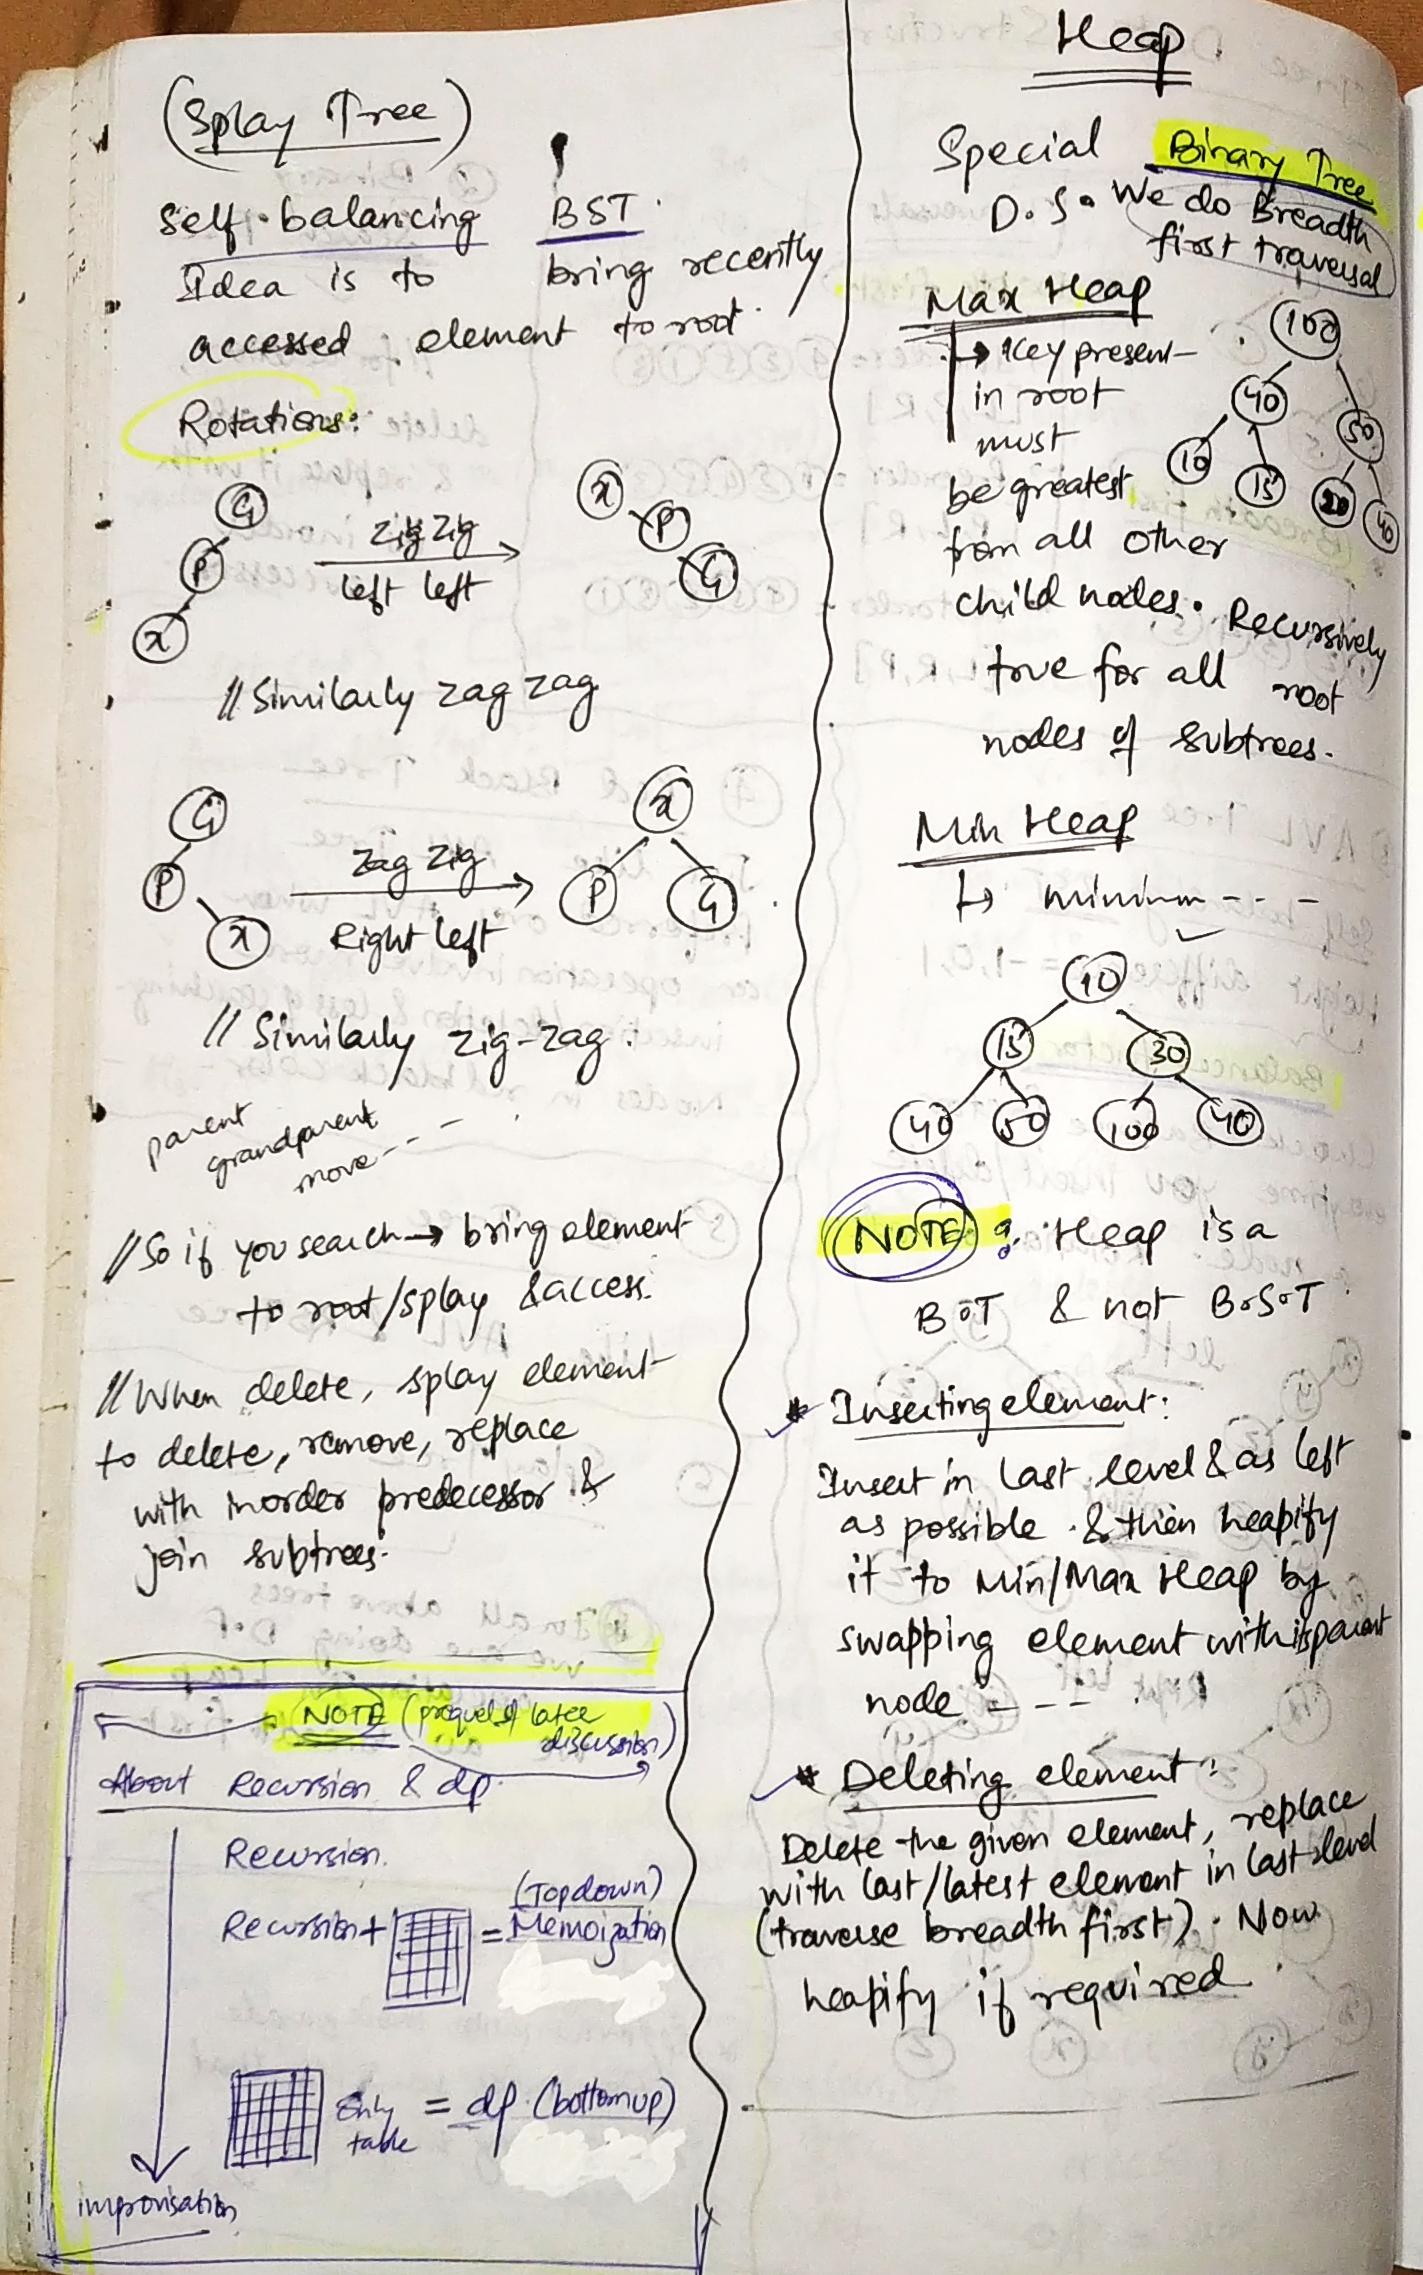 (Splay Tree)
Self-balancing BST.
Idea is to bring recently
accessed element to root.
Rotations:
G
P
x
Zig Zig
left left
x
P
G
// Similarly zag zag
G
P
x
Zag Zig
Right left
x
P
G
// Similarly zig-zag.
parent
grandparent
move - - -
// So if you search → bring element
to root/splay & access.
// When delete, splay element
to delete, remove, replace
with inorder predecessor &
join subtrees.
NOTE (prequel of later
discussion)
About Recursion & dp.
Recursion.
Recursion +
= (Topdown)
Memoization
Only
table
= dp. (bottomup)
improvisation
Heap
Special Binary Tree
D.S. We do Breadth
first traversal
Max Heap
↳ Key present
in root
must
be greatest
from all other
child nodes. Recursively
true for all root
nodes of subtrees.
100
40
50
10
15
20
40
Min Heap
↳ minimum - - -
10
15
30
40
50
100
40
NOTE : Heap is a
B.T & not B.S.T.
* Inserting element:
Insert in last level & as left
as possible. & then heapify
it to Min/Max Heap by
swapping element with its parent
node - - -
* Deleting element:
Delete the given element, replace
with last/latest element in last level
(traverse breadth first). Now
heapify if required